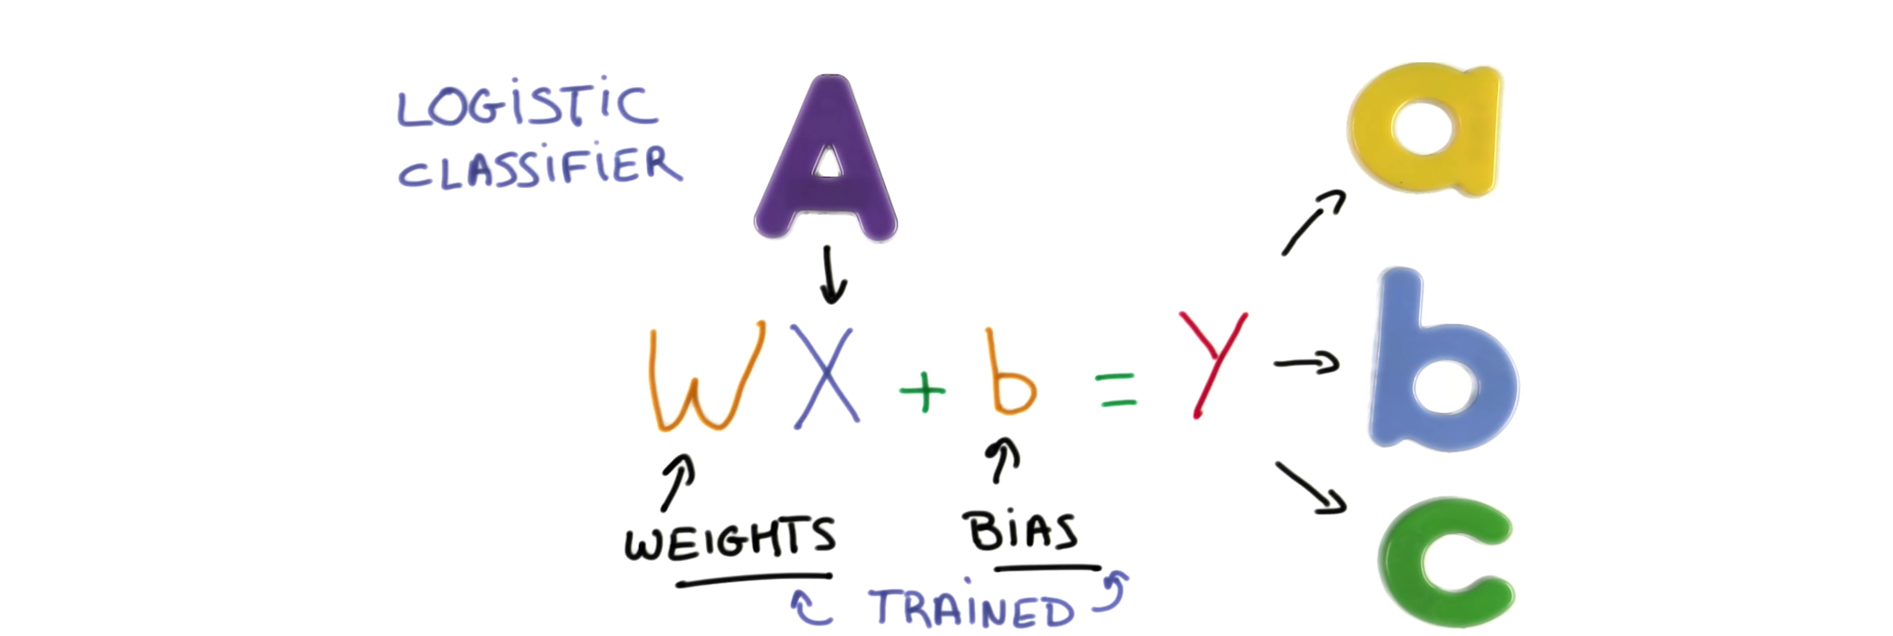 LOGISTIC
CLASSIFIER
A
WX + b = Y
a
b
c
WEIGHTS
BIAS
TRAINED